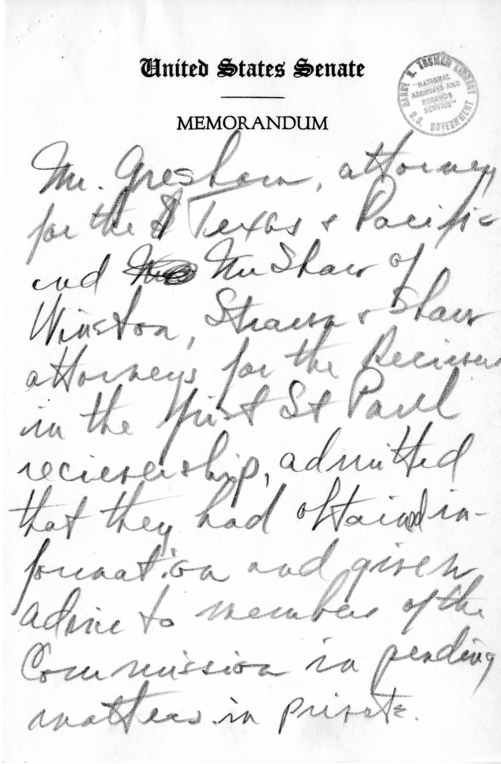 United States Senate
MEMORANDUM
HARRY S. TRUMAN LIBRARY
"NATIONAL
ARCHIVES AND
RECORDS
SERVICE"
U.S. GOVERNMENT
Mr. Gresham, attorney
for the Texas & Pacific
and Mr Shaw of
Winston, Strawn & Shaw
attorneys for the Recievers
in the first St Paul
recievership, admitted
that they had obtained in-
formation and given
advice to member of the
Commission in pending
matters in private.